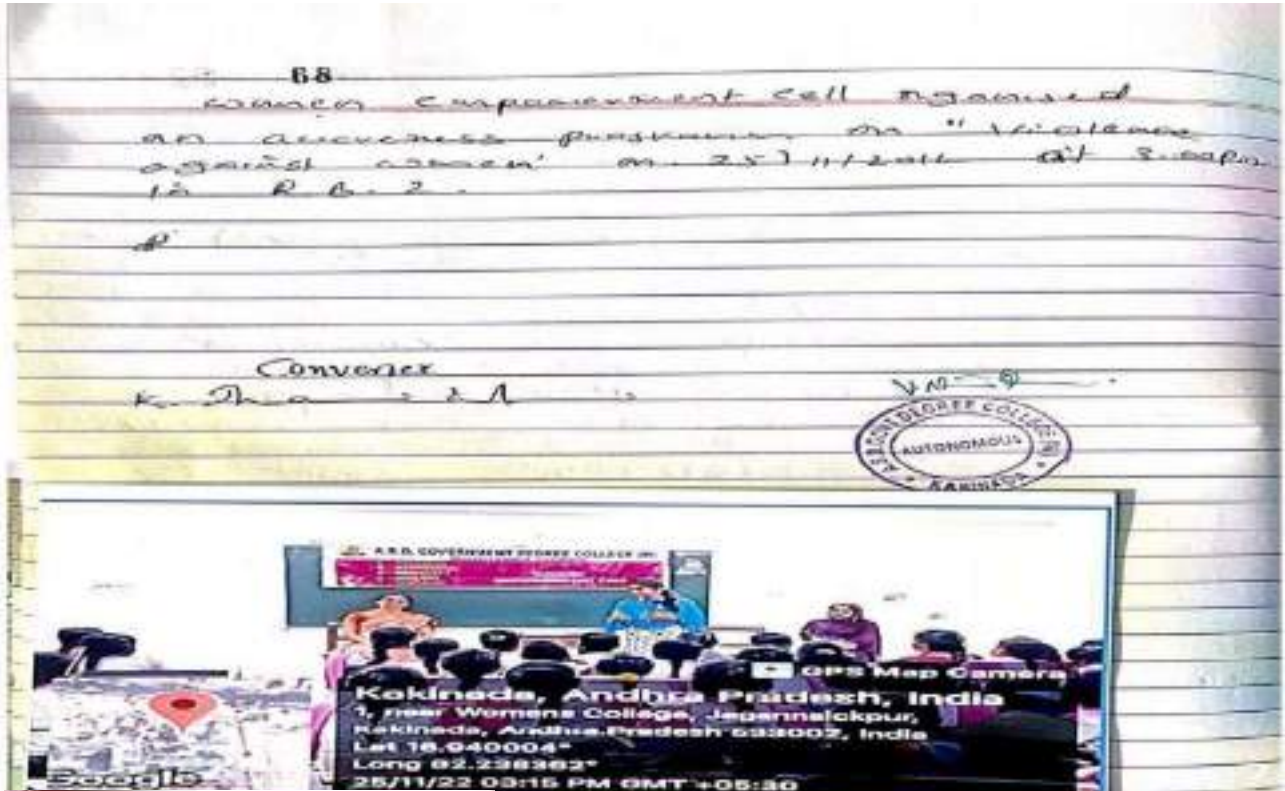 68
women empowerment cell organised
an awareness program on "Violence
against women' on 25/11/ at 3.00pm
in R.B-2.
Convener
K.
A.S.D GOVT DEGREE COLLEGE (W)
AUTONOMOUS
KAKINADA
A.S.D. GOVERNMENT DEGREE COLLEGE (W)
GPS Map Camera
Kakinada, Andhra Pradesh, India
1, near Womens College, Jagannaickpur,
Kakinada, Andhra Pradesh 533002, India
Lat 16.940004°
Long 82.238362°
25/11/22 03:15 PM GMT +05:30
Google